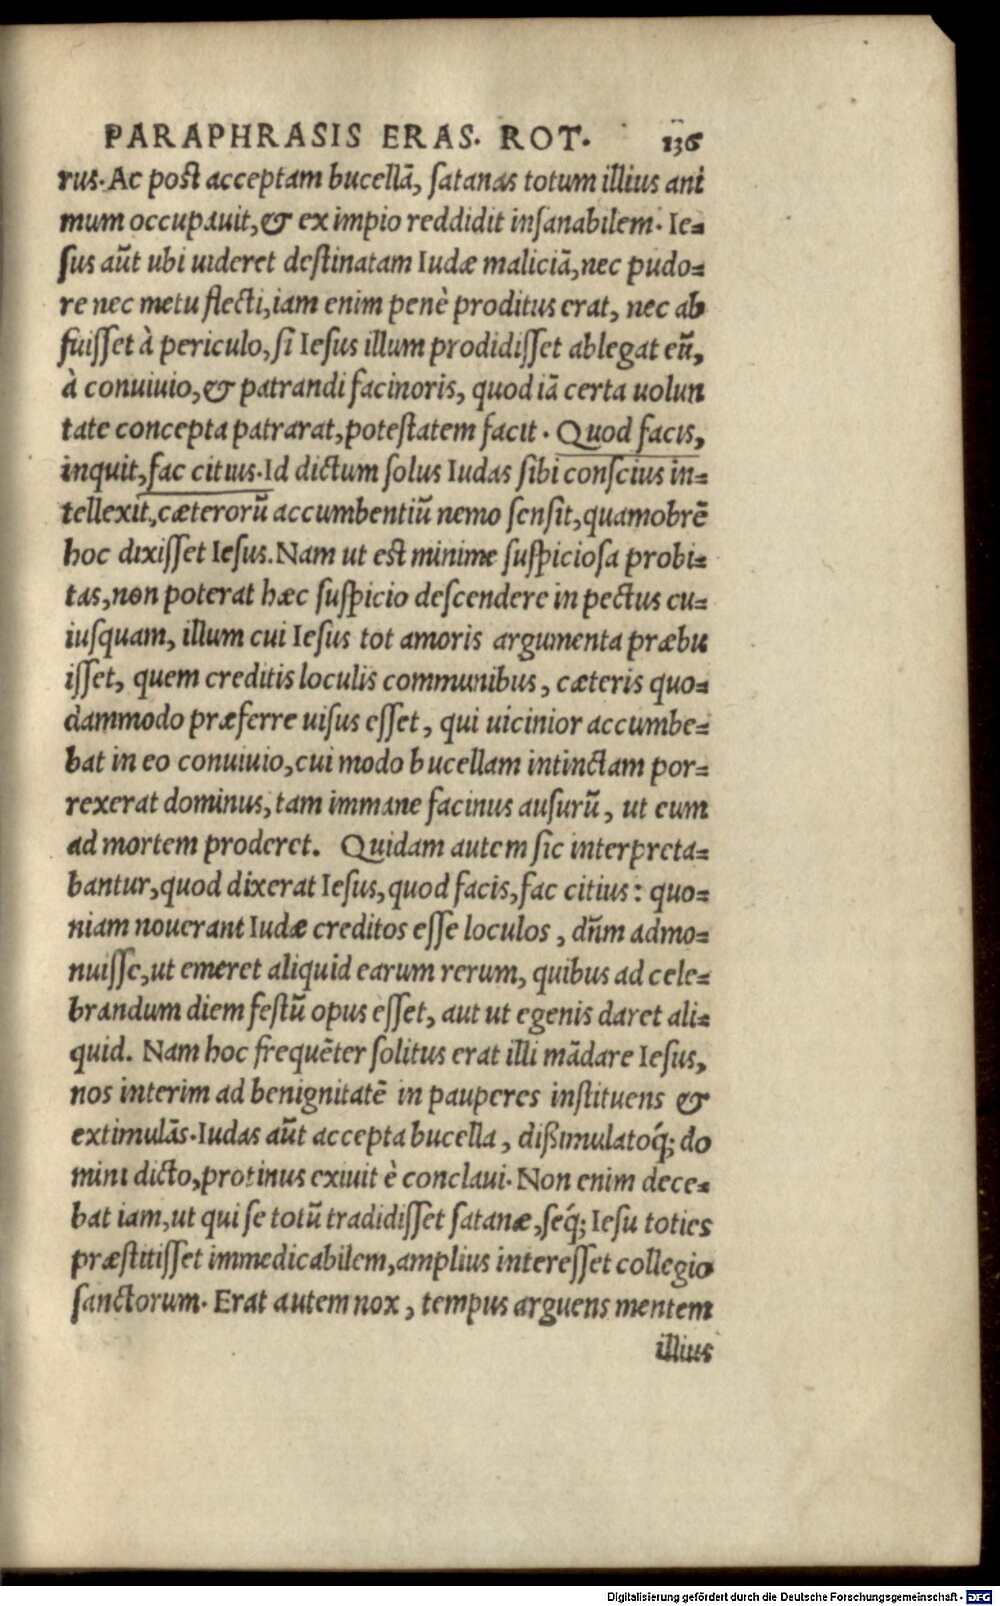 PARAPHRASIS ERAS. ROT. 136
rus. Ac post acceptam bucellā, satanas totum illius ani
mum occupauit, & ex impio reddidit insanabilem. Ie=
sus aūt ubi uideret destinatam Iudæ maliciā, nec pudo=
re nec metu flecti, iam enim penè proditus erat, nec ab
fuisset à periculo, si Iesus illum prodidisset ablegat eū,
à conuiuio, & patrandi facinoris, quod iā certa uolun
tate concepta patrarat, potestatem facit. Quod facis,
inquit, fac citius. Id dictum solus Iudas sibi conscius in=
tellexit, cæterorū accumbentiū nemo sensit, quamobrē
hoc dixisset Iesus. Nam ut est minime suspiciosa probi=
tas, non poterat hæc suspicio descendere in pectus cu=
iusquam, illum cui Iesus tot amoris argumenta præbu
isset, quem creditis loculis communibus, cæteris quo=
dammodo præferre uisus esset, qui uicinior accumbe=
bat in eo conuiuio, cui modo bucellam intinctam por=
rexerat dominus, tam immane facinus ausurū, ut eum
ad mortem proderet. Quidam autem sic interpreta=
bantur, quod dixerat Iesus, quod facis, fac citius: quo=
niam nouerant Iudæ creditos esse loculos, dn̄m admo=
nuisse, ut emeret aliquid earum rerum, quibus ad cele=
brandum diem festū opus esset, aut ut egenis daret ali=
quid. Nam hoc frequēter solitus erat illi mādare Iesus,
nos interim ad benignitatē in pauperes instituens &
extimulās. Iudas aūt accepta bucella, dißimulatoq́; do
mini dicto, protinus exiuit è conclaui. Non enim dece=
bat iam, ut qui se totū tradidisset satanæ, seq́; Iesu toties
præstitisset immedicabilem, amplius interesset collegio
sanctorum. Erat autem nox, tempus arguens mentem
illius
Digitalisierung gefördert durch die Deutsche Forschungsgemeinschaft - DFG